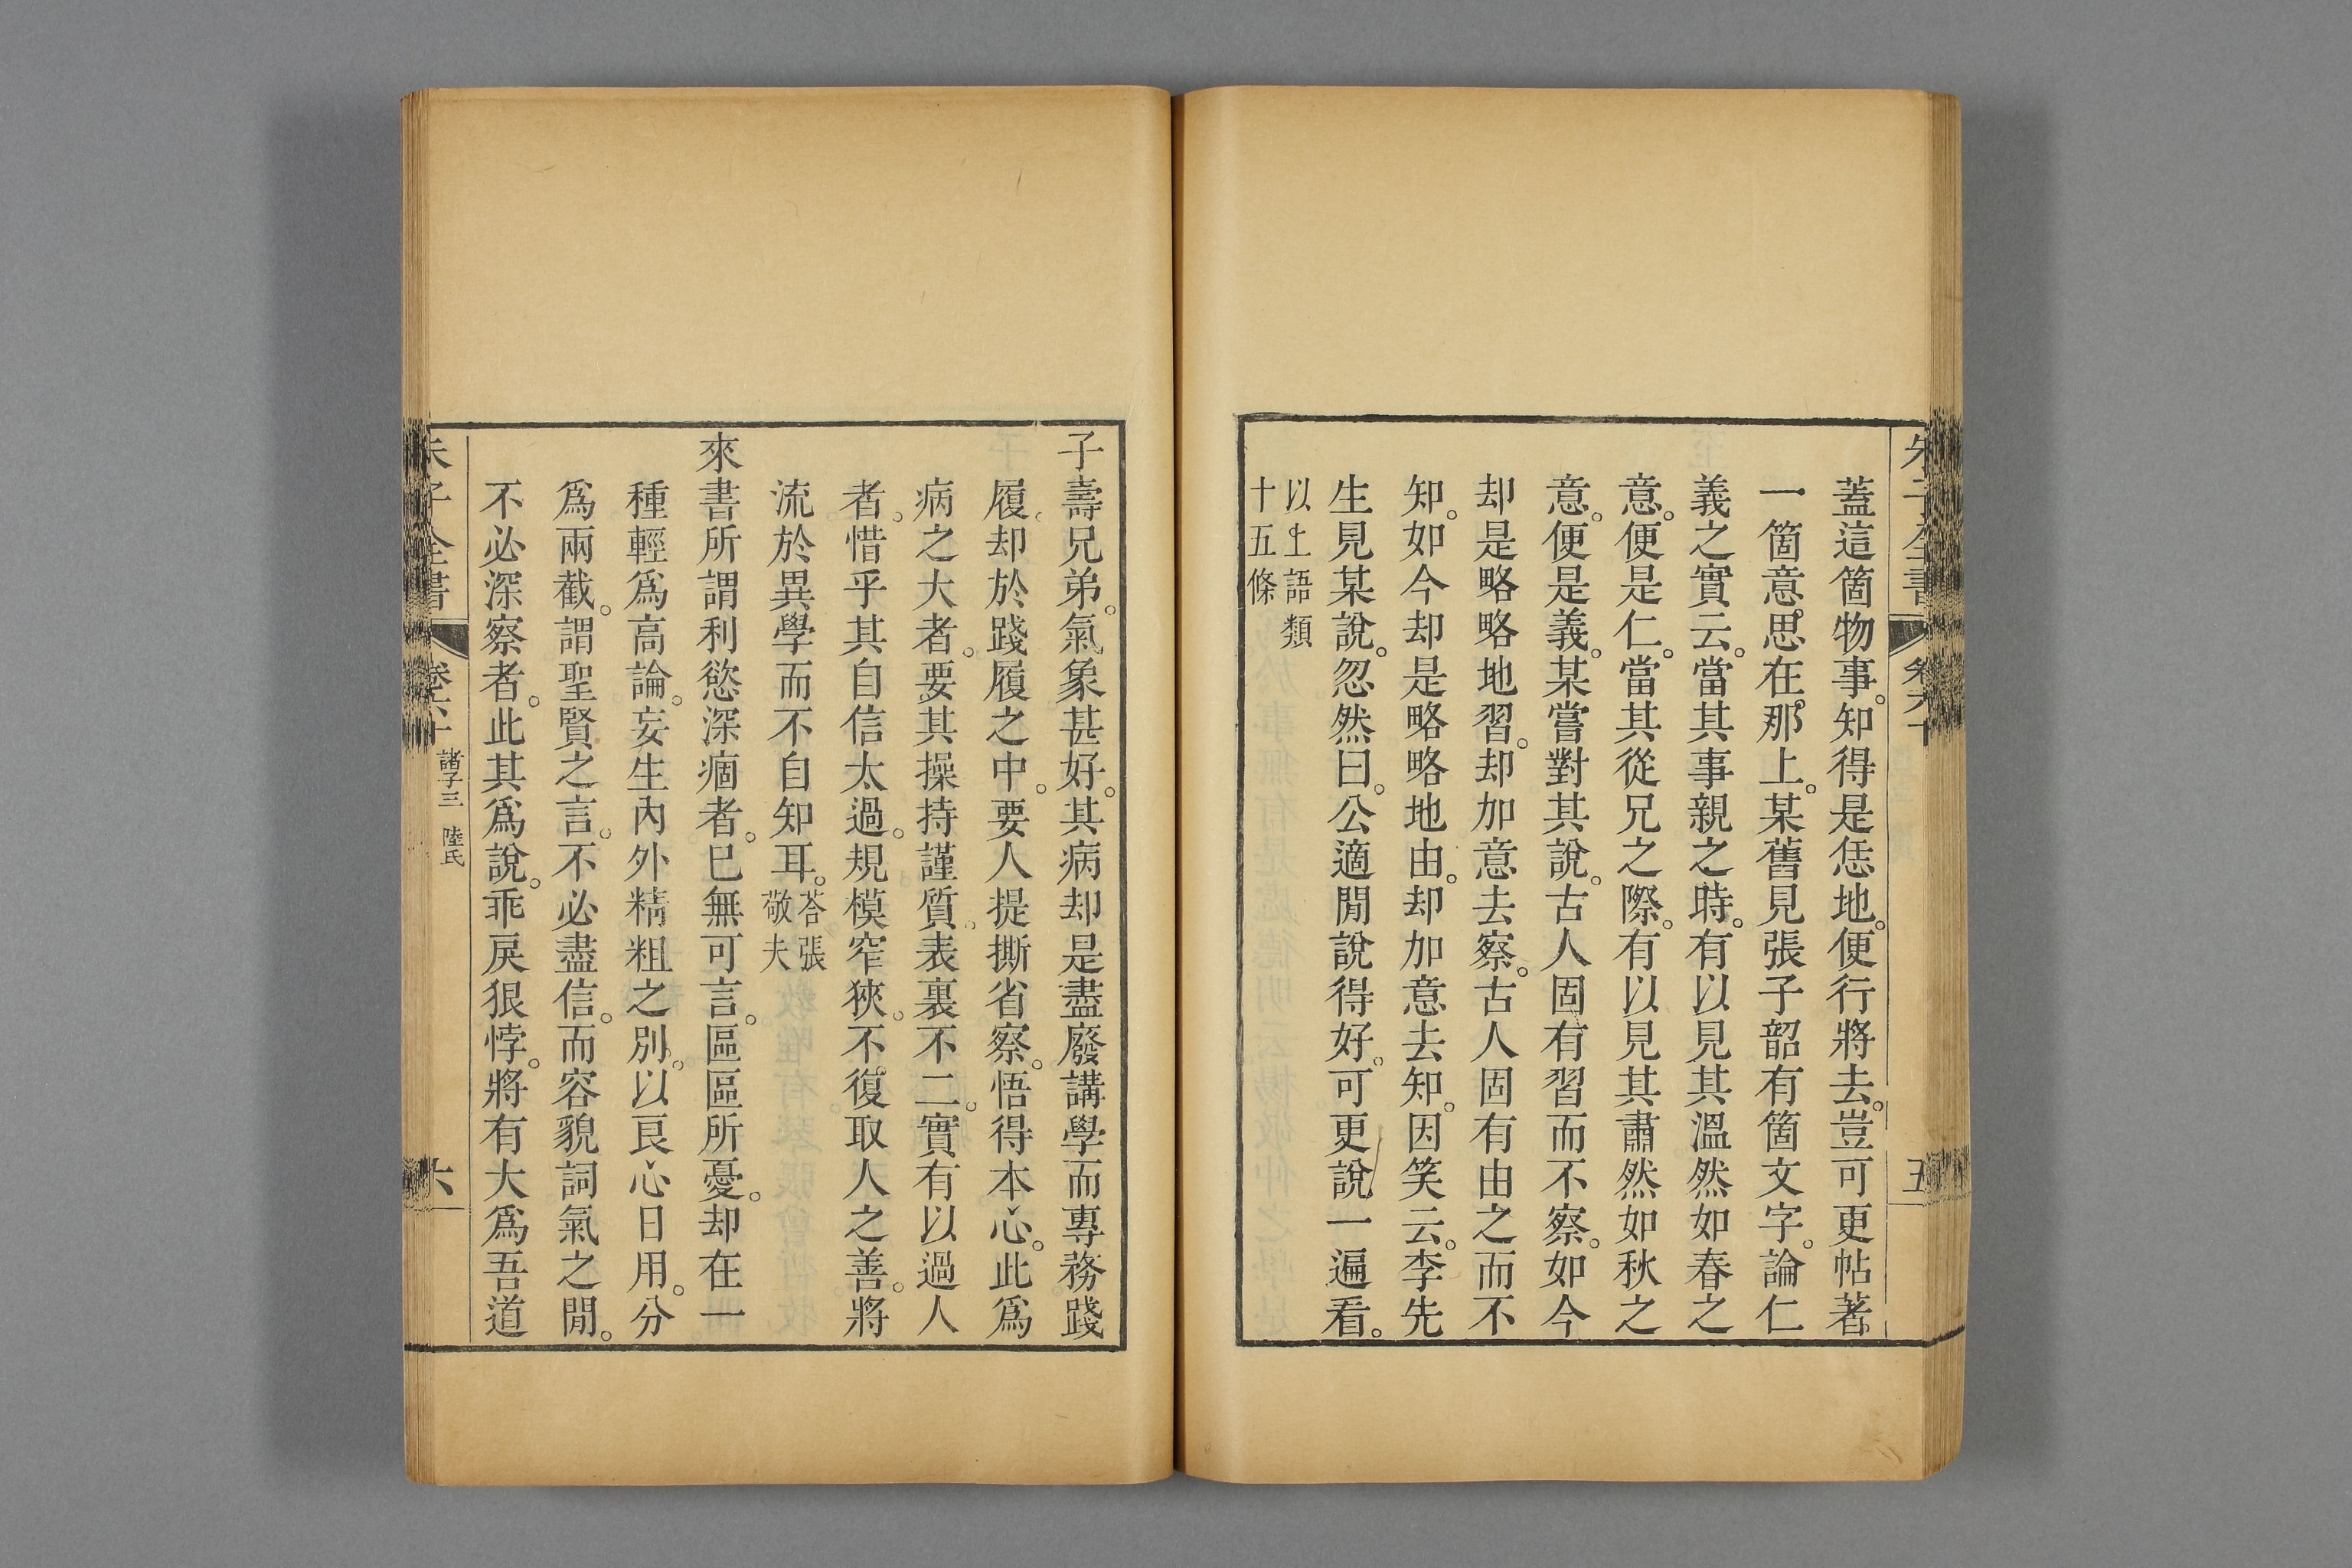 蓋這箇物事。知得是恁地。便行將去。豈可更帖著
一箇意思在那上。某舊見張子韶有箇文字。論仁
義之實云。當其事親之時。有以見其溫然如春之
意。便是仁。當其從兄之際。有以見其肅然如秋之
意。便是義。某嘗對其說。古人固有習而不察。如今
却是略略地習。却加意去察。古人固有由之而不
知。如今却是略略地由。却加意去知。因笑云。李先
生見某說。忽然曰。公適閒說得好。可更說一遍看。
以上語類
十五條
子壽兄弟。氣象甚好。其病却是盡廢講學而專務踐
履。却於踐履之中。要人提撕省察。悟得本心。此爲
病之大者。要其操持謹質。表裏不二。實有以過人
者。惜乎其自信太過。規模窄狹。不復取人之善。將
流於異學而不自知耳。荅張
敬夫
來書所謂利慾深痼者。已無可言。區區所憂。却在一
種輕爲高論。妄生內外精粗之別。以良心日用。分
爲兩截。謂聖賢之言。不必盡信。而容貌詞氣之閒。
不必深察者。此其爲說。乖戾狠悖。將有大爲吾道
朱子全書
卷六十
諸子三 陸氏
六